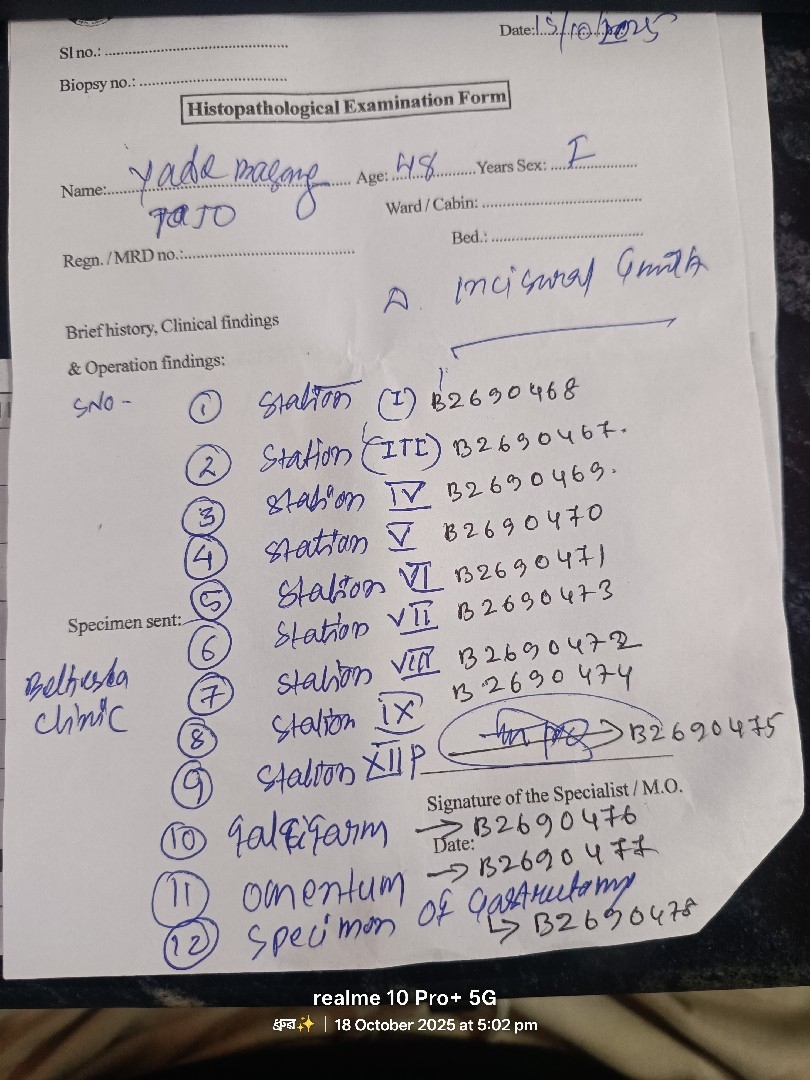 Date: 15/10/2025
Sl no.:
Biopsy no.:
Histopathological Examination Form
Name: Yade Age: 48 Years Sex: F
TaJO Ward / Cabin:
Regn. / MRD no.: Bed.:
D. Incisural Growth
Brief history, Clinical findings
& Operation findings:
SNO - 1 Station (I) B2690468
2 Station (III) B2690467.
3 Station IV B2690469.
4 Station V B2690470
5 Station VI B2690471
Specimen sent: 6 Station VII B2690473
Bethesda 7 Station VIII B2690472
clinic 8 Station IX B2690474
9 Station XII P → B2690475
Signature of the Specialist / M.O.
10 falciform → B2690476
Date:
11 omentum → B2690477
12 Specimen OF Gastrectomy
↳ B2690478
realme 10 Pro+ 5G
18 October 2025 at 5:02 pm